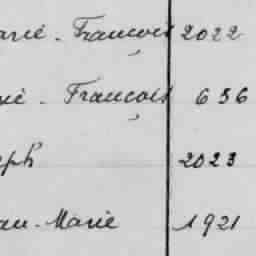 arie. François 2022
rie. François 636
eph 2023
ean. Marie 1921